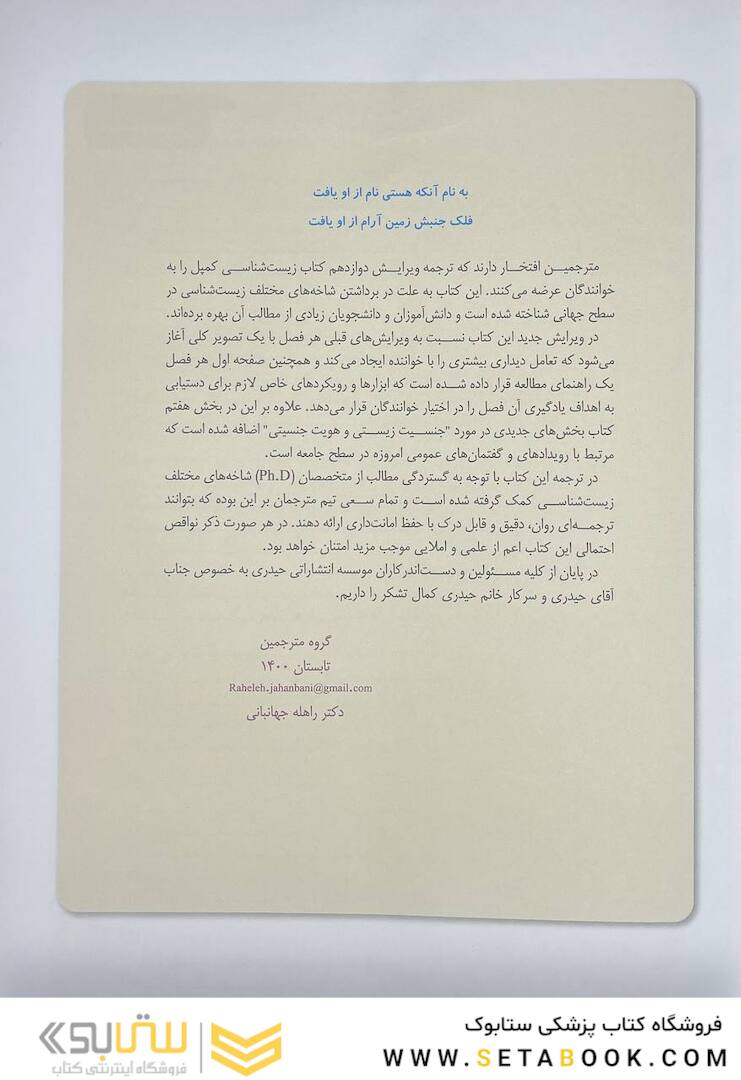 به نام آنکه هستی نام از او یافت
فلک جنبش زمین آرام از او یافت
مترجمین افتخار دارند که ترجمه ویرایش دوازدهم کتاب زیست‌شناسی کمپل را به
خوانندگان عرضه می‌کنند. این کتاب به علت در برداشتن شاخه‌های مختلف زیست‌شناسی در
سطح جهانی شناخته شده است و دانش‌آموزان و دانشجویان زیادی از مطالب آن بهره برده‌اند.
در ویرایش جدید این کتاب نسبت به ویرایش‌های قبلی هر فصل با یک تصویر کلی آغاز
می‌شود که تعامل دیداری بیشتری را با خواننده ایجاد می‌کند و همچنین صفحه اول هر فصل
یک راهنمای مطالعه قرار داده شده است که ابزارها و رویکردهای خاص لازم برای دستیابی
به اهداف یادگیری آن فصل را در اختیار خوانندگان قرار می‌دهد. علاوه بر این در بخش هفتم
کتاب بخش‌های جدیدی در مورد "جنسیت زیستی و هویت جنسیتی" اضافه شده است که
مرتبط با رویدادهای و گفتمان‌های عمومی امروزه در سطح جامعه است.
در ترجمه این کتاب با توجه به گستردگی مطالب از متخصصان (Ph.D) شاخه‌های مختلف
زیست‌شناسی کمک گرفته شده است و تمام سعی تیم مترجمان بر این بوده که بتوانند
ترجمه‌ای روان، دقیق و قابل درک با حفظ امانت‌داری ارائه دهند. در هر صورت ذکر نواقص
احتمالی این کتاب اعم از علمی و املایی موجب مزید امتنان خواهد بود.
در پایان از کلیه مسئولین و دست‌اندرکاران موسسه انتشاراتی حیدری به خصوص جناب
آقای حیدری و سرکار خانم حیدری کمال تشکر را داریم.
گروه مترجمین
تابستان ۱۴۰۰
Raheleh.jahanbani@gmail.com
دکتر راهله جهانبانی
فروشگاه کتاب پزشکی ستابوک
WWW.SETABOOK.COM
ستابوک
فروشگاه اینترنتی کتاب